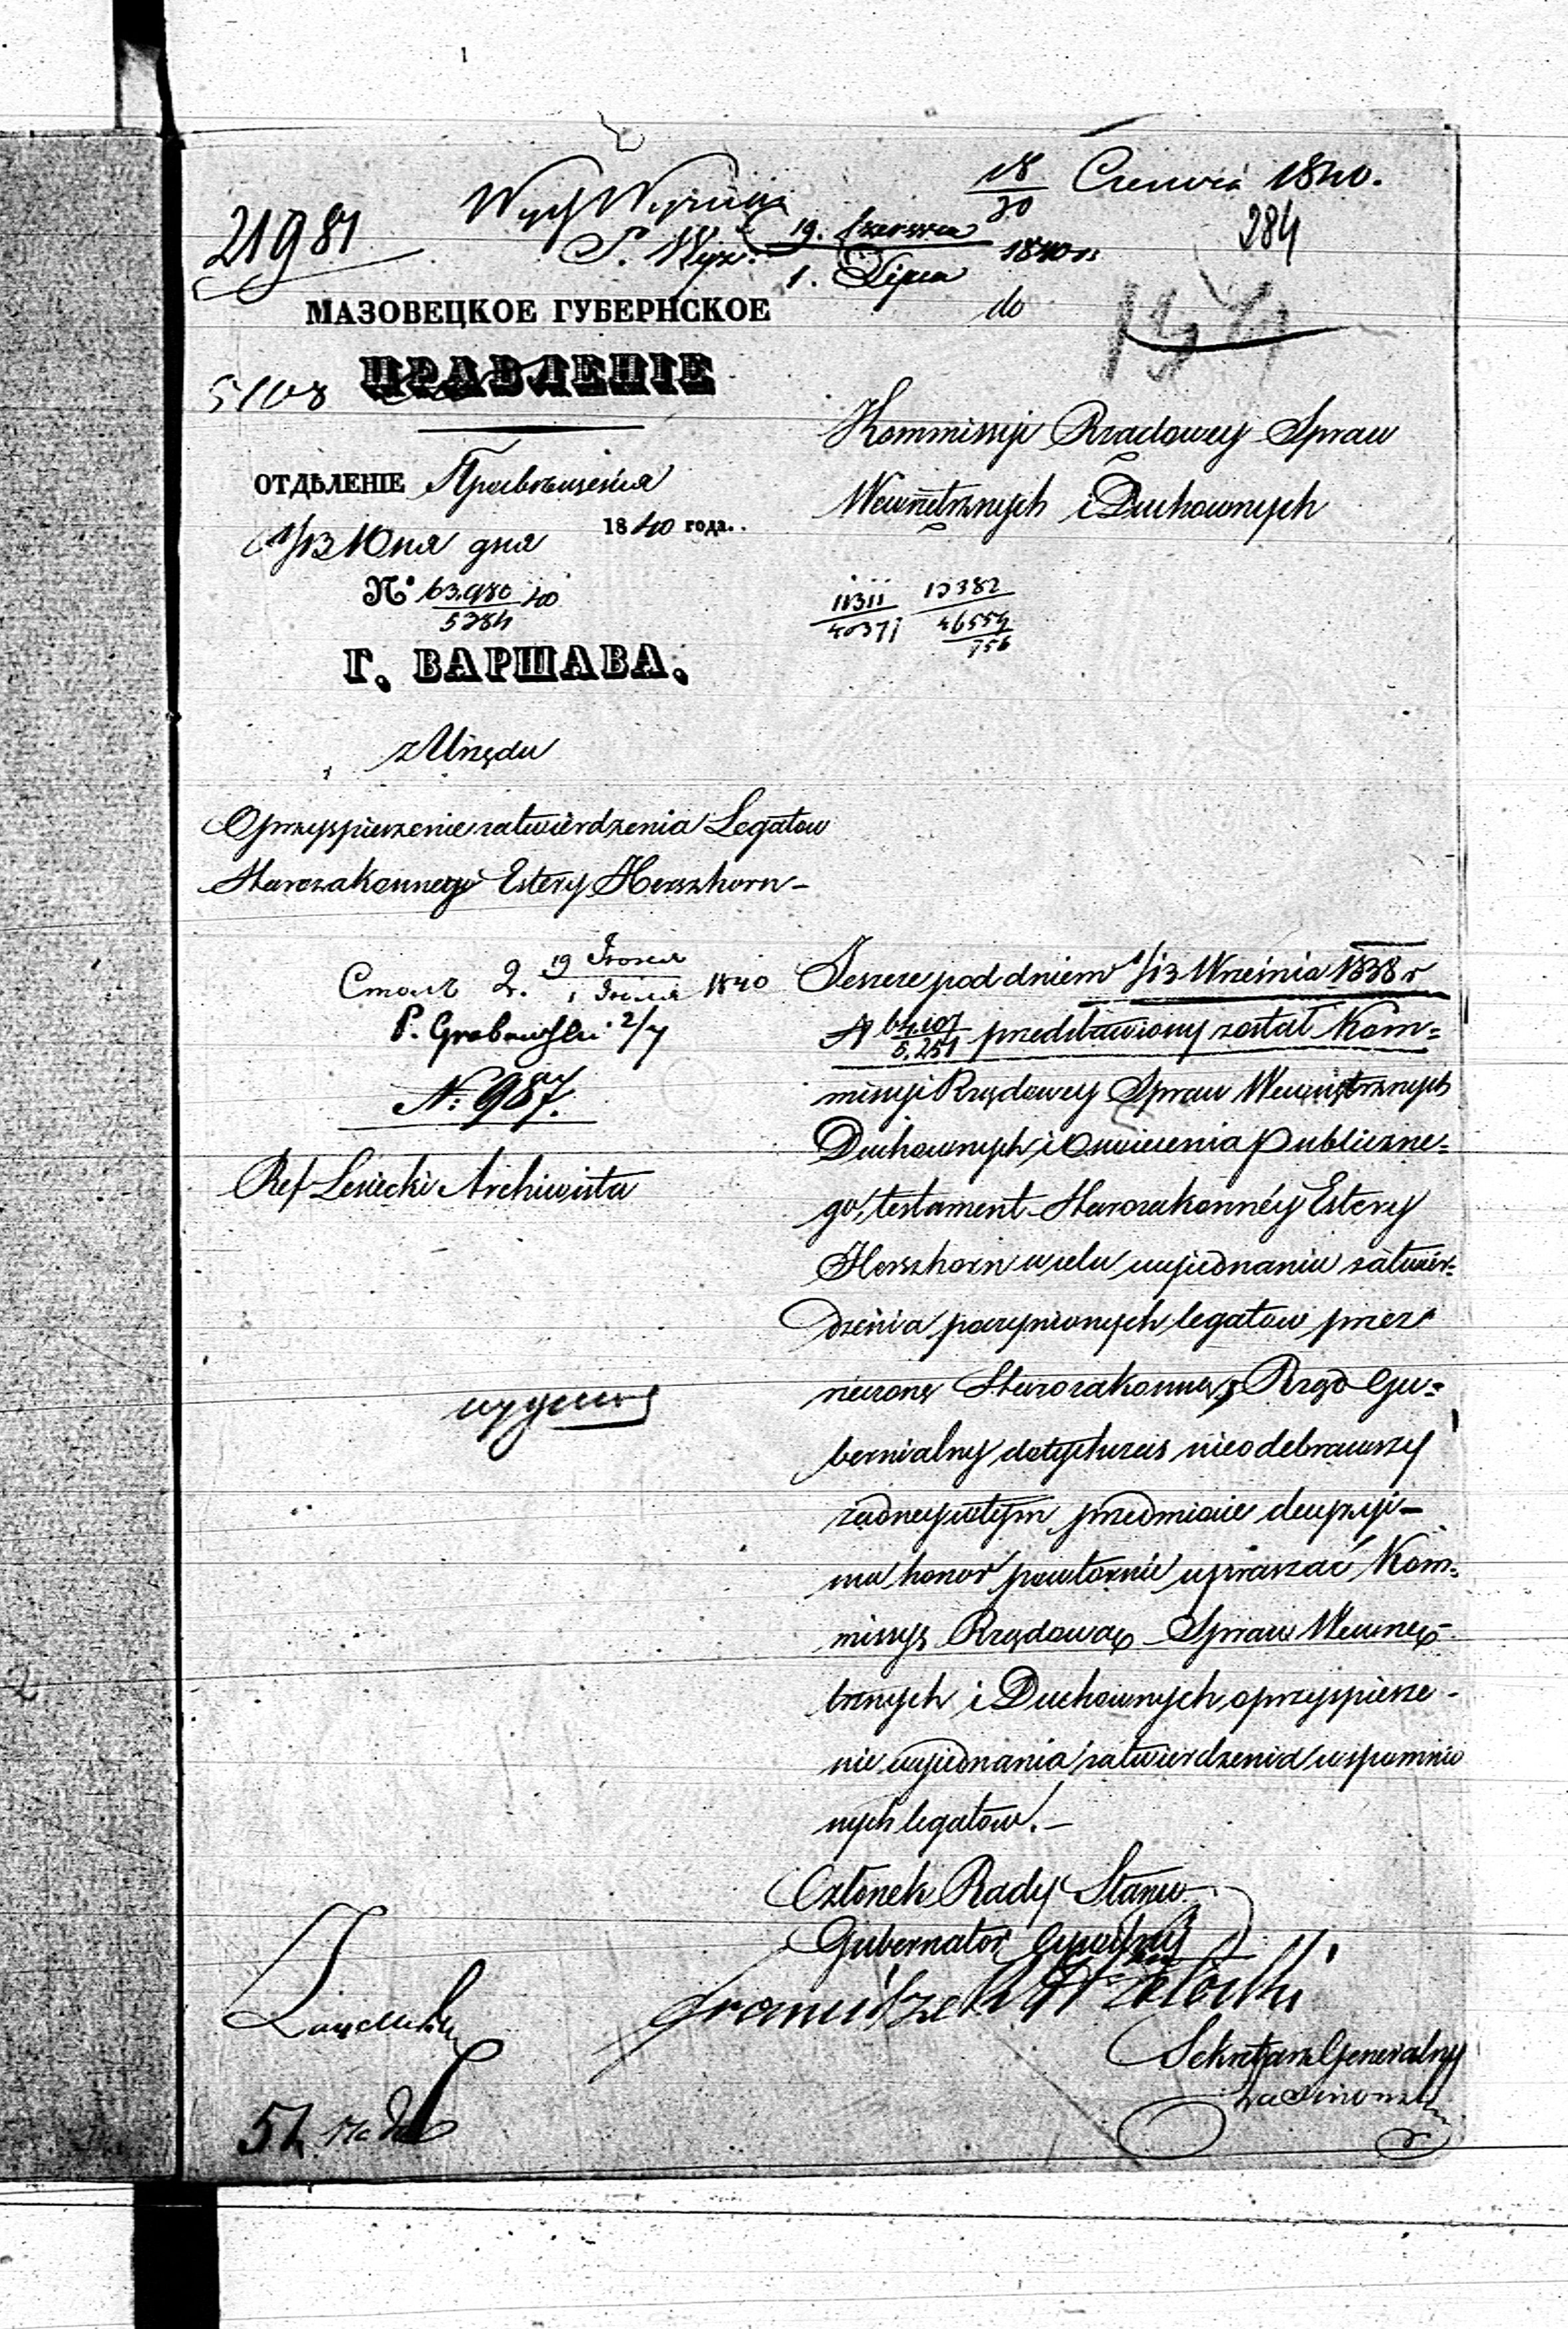 18/30 Czerwca 1840.
21981
284
19. Czerwca
1. Lipca 1840 r.
МАЗОВЕЦКОЕ ГУБЕРНСКОЕ
do
ПРАВЛЕНІЕ
5108
Kommissyi Rządowey Spraw
ОТДѢЛЕНІЕ Просвещенія
Wewnętrznych i Duchownych
1/13 Юня дня 1840 года..
N° 63.980/5284 40
11311/40371 12382/46554/756
Г. ВАРШАВА.
z Urzędu
O przyspieszenie zatwierdzenia Legatow
Starozakonnego Estery Herszhorn -
Столъ 2. 19 Іюня/1 Іюля 1840
P. Grabowski 2/7
N: 987.
Ref Lesiecki Archiwista
Jeszcze pod dniem 1/13 Września 1838 r
N 64.107/8.251 przedstawiony został Kom=
missyi Rządowey Spraw Wewnętrznych
Duchownych i Oświecenia Publiczne=
go, testament Starozakonnéy Estery
Herszhorn w celu wyjednania zatwier=
dzenia poczynionych legatow przez
rzeczoną Starozakonną, Rząd Gu=
bernialny dotychczas nieodebrawszy
żadney w tym przedmiocie decyzyi -
ma honor powtornie upraszać Kom=
missyę Rządową Spraw Wewnę=
trznych i Duchownych o przyspiesze -
nie wyjednania zatwierdzenia wspomnio
nych legatow. -
Członek Rady Stanu
Gubernator Cywilny
Sekretarz Generalny